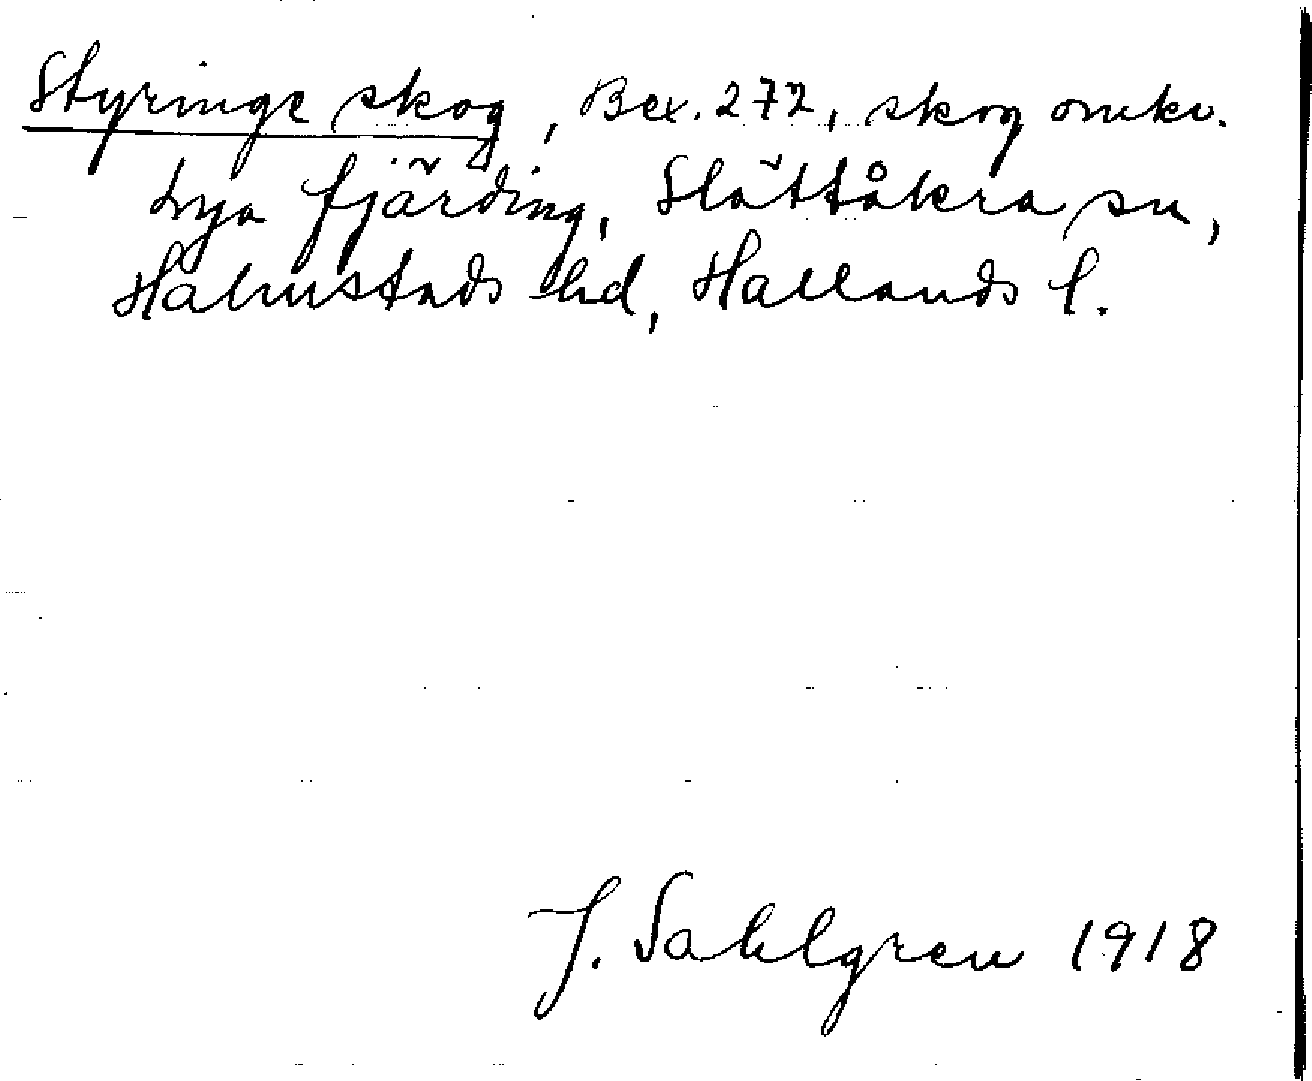 Styringe skog, Bex. 272, skog omkr.
Lya fjärding, Slättåkra sn,
Halmstads hd, Hallands l.
J. Sahlgren 1918